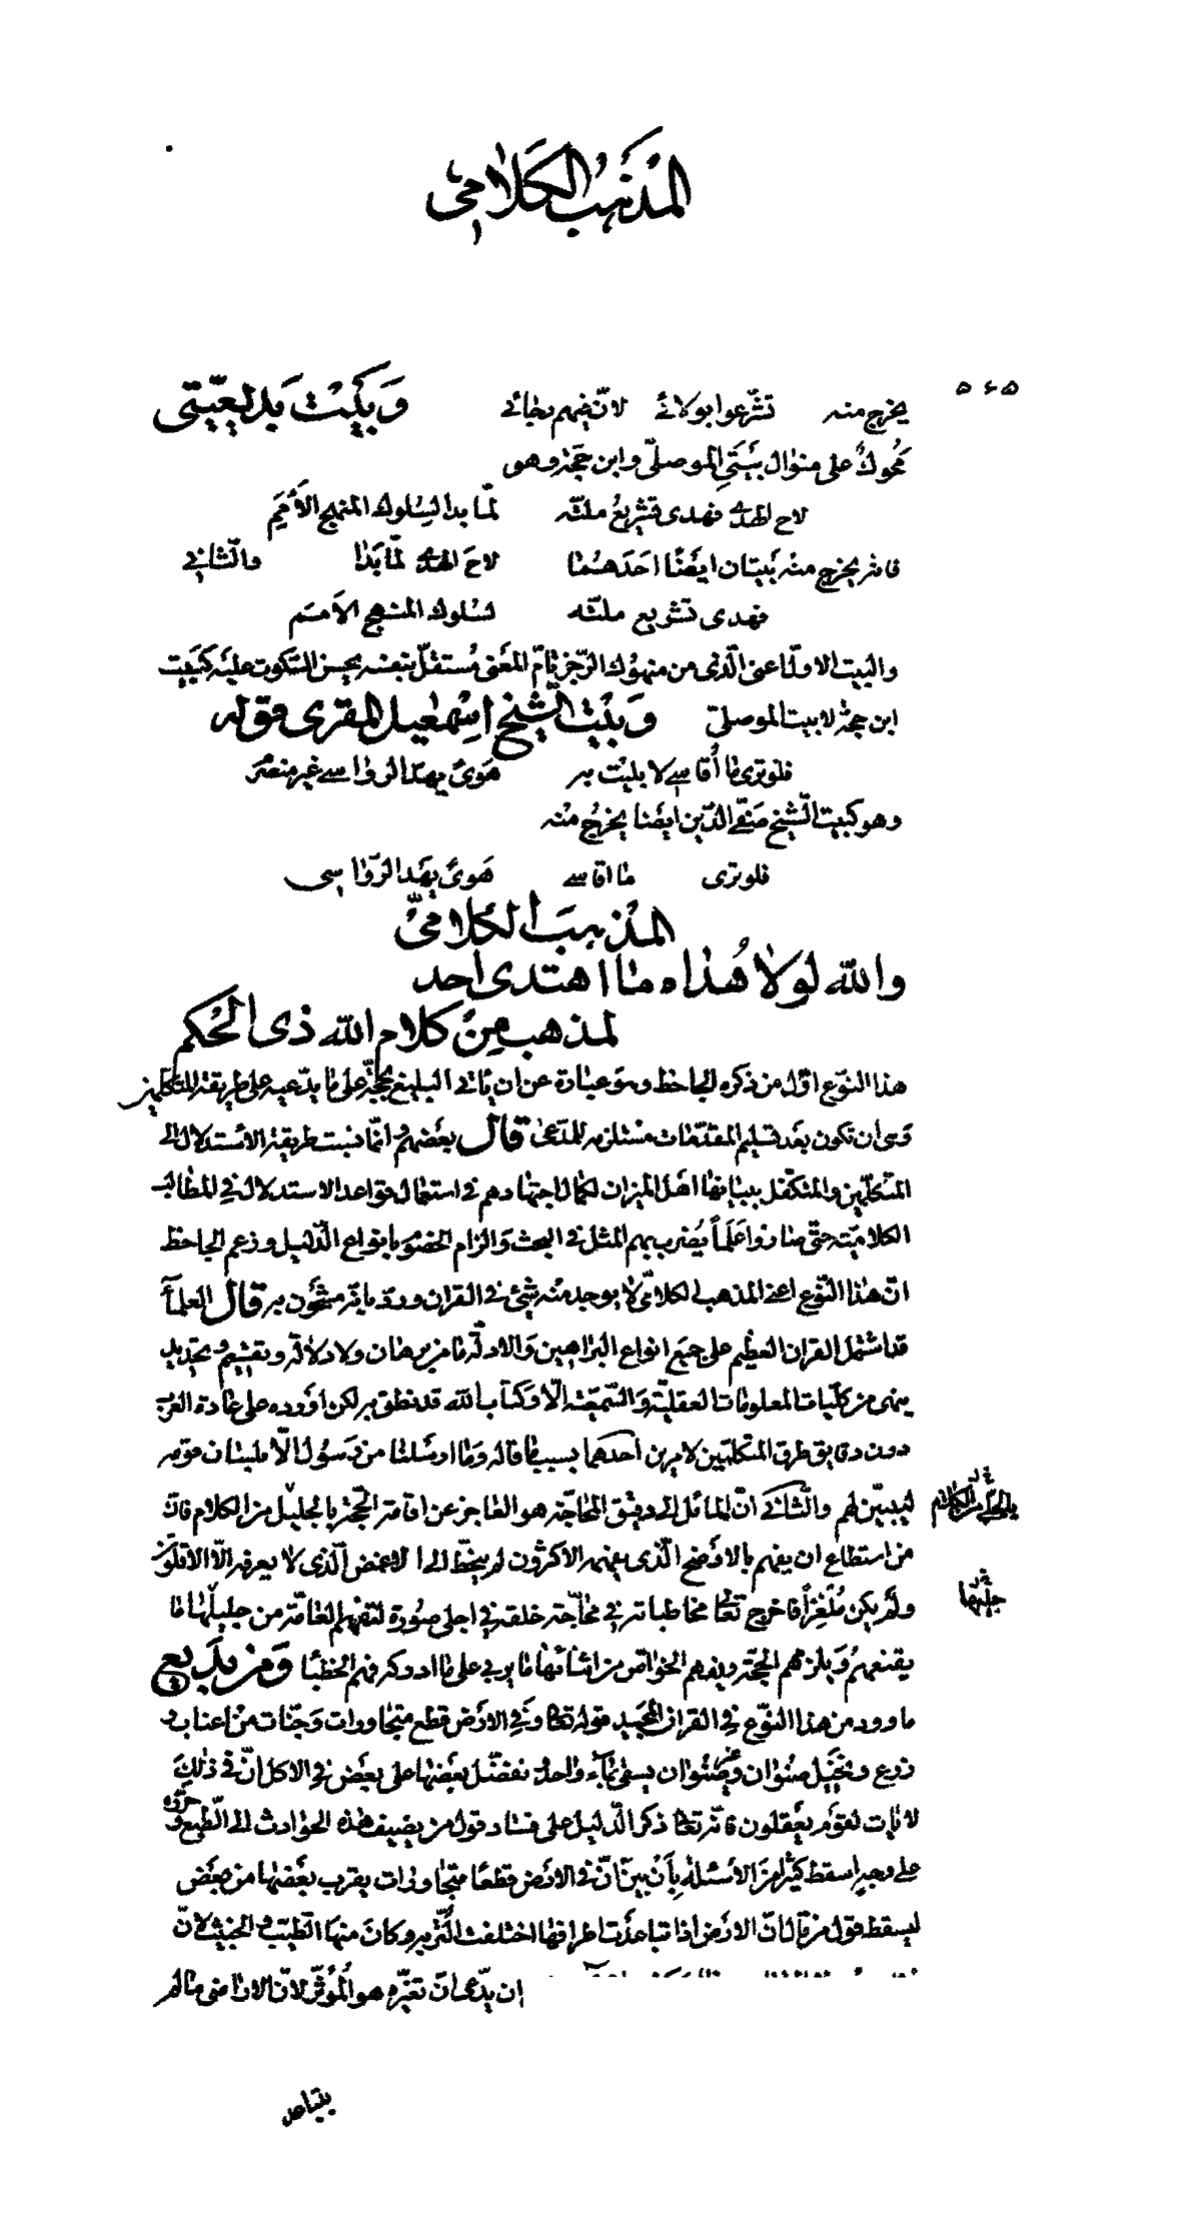 المذهب الكلامي
٥٦٥
يخرج منه تشرعوا بولائي لأنهم وبيت بديعيتي
محوك على منوال بيتي الموصلي وابن حجة وهو
لاح الهدى فهدى تشريع ملته لما بدا لسلوك المنهج الأمم
فانه يخرج منه بيتان ايضا احدهما لاح الهدى لما بدا والثاني
فهدى تشريع ملته لسلوك المنهج الأمم
والبيت الاول اعني الذي من منهوك الرجز تام المعنى مستقل بنفسه يحسن السكوت عليه كبيت
ابن حجة لا بيت الموصلي وبيت الشيخ اسمعيل المقري قوله
فلو ترى ما أقاسي لا بليت به هوى بهد الرواسي غير
وهو كبيت الشيخ صفي الدين ايضا يخرج منه
فلو ترى ما اقاسي هوى بهد الرواسي
المذهب الكلامي
والله لولا هداه ما اهتدى احد
لمذهب من كلام الله ذي الحكم
هذا النوع اول من ذكره الجاحظ وهو عبارة عن ان يأتي البليغ بحجة على ما يدعيه على طريقة المتكلمين
وهي ان تكون بعد تسليم المقدمات مستلزمة للمدعى قال بعضهم وانما نسبت طريقة الاستدلال الى
المتكلمين والمتكفل ببيانها اهل الميزان لكمال اجتهادهم في استعمال قواعد الاستدلال في المطالب
الكلامية حتى صاروا علما يضرب بهم المثل في البحث والزام الخصوم بانواع الدليل وزعم الجاحظ
ان هذا النوع اعني المذهب الكلامي لا يوجد منه شيئ في القران ورد بانه مشحون به قال العلمآ
قد اشتمل القران العظيم على جميع انواع البراهين والادلة فما من برهان ولا دلالة وتقسيم وتحديد
يبنى من كليات المعلومات العقلية والسمعية الا وكتاب الله قد نطق به لكن اورده على عادة العرب
دون دقايق طرق المتكلمين لامرين احدهما بسبب ما قاله وما ارسلنا من رسول الا بلسان قومه
ليبين لهم والثاني ان المائل الى دقيق المحاجة هو العاجز عن اقامة الحجة بالجليل من الكلام فان
بالجلي من الكلام
من استطاع ان يفهم بالاوضح الذي يفهمه الاكثرون لم ينحط الى الاغمض الذي لا يعرفه الا الاقلون
ولم يكن ملغزا فاخرج تعالى مخاطباته في محاجة خلقه في اجلى صورة لتفهم العامة من جليلها ما
جليها
يقنعهم ويلزمهم الحجة ويفهم الخواص من اثنائها ما يربي على ما ادركه فهم الخطبا ومن بديع
ما ورد من هذا النوع في القران المجيد قوله تعالى وفي الارض قطع متجاورات وجنات من اعناب و
زرع ونخيل صنوان وغير صنوان يسقى بمآء واحد ونفضل بعضها على بعض في الاكل ان في ذلك
لايات لقوم يعقلون فانه تعالى ذكر الدليل على فساد قول من يضيف هذه الحوادث الى الطبع و
حرره
على وجه اسقط كثيرا من الأسئلة بأن بين ان في الارض قطعا متجاورات يقرب بعضها من بعض
ليسقط قول من قال ان الارض اذا تباعدت اطرافها اختلفت التربة وكان منها الطيب والخبيث لان
ان يدعى ان تغيره هو المؤثر لان الاراضي ما لم
يتباعد